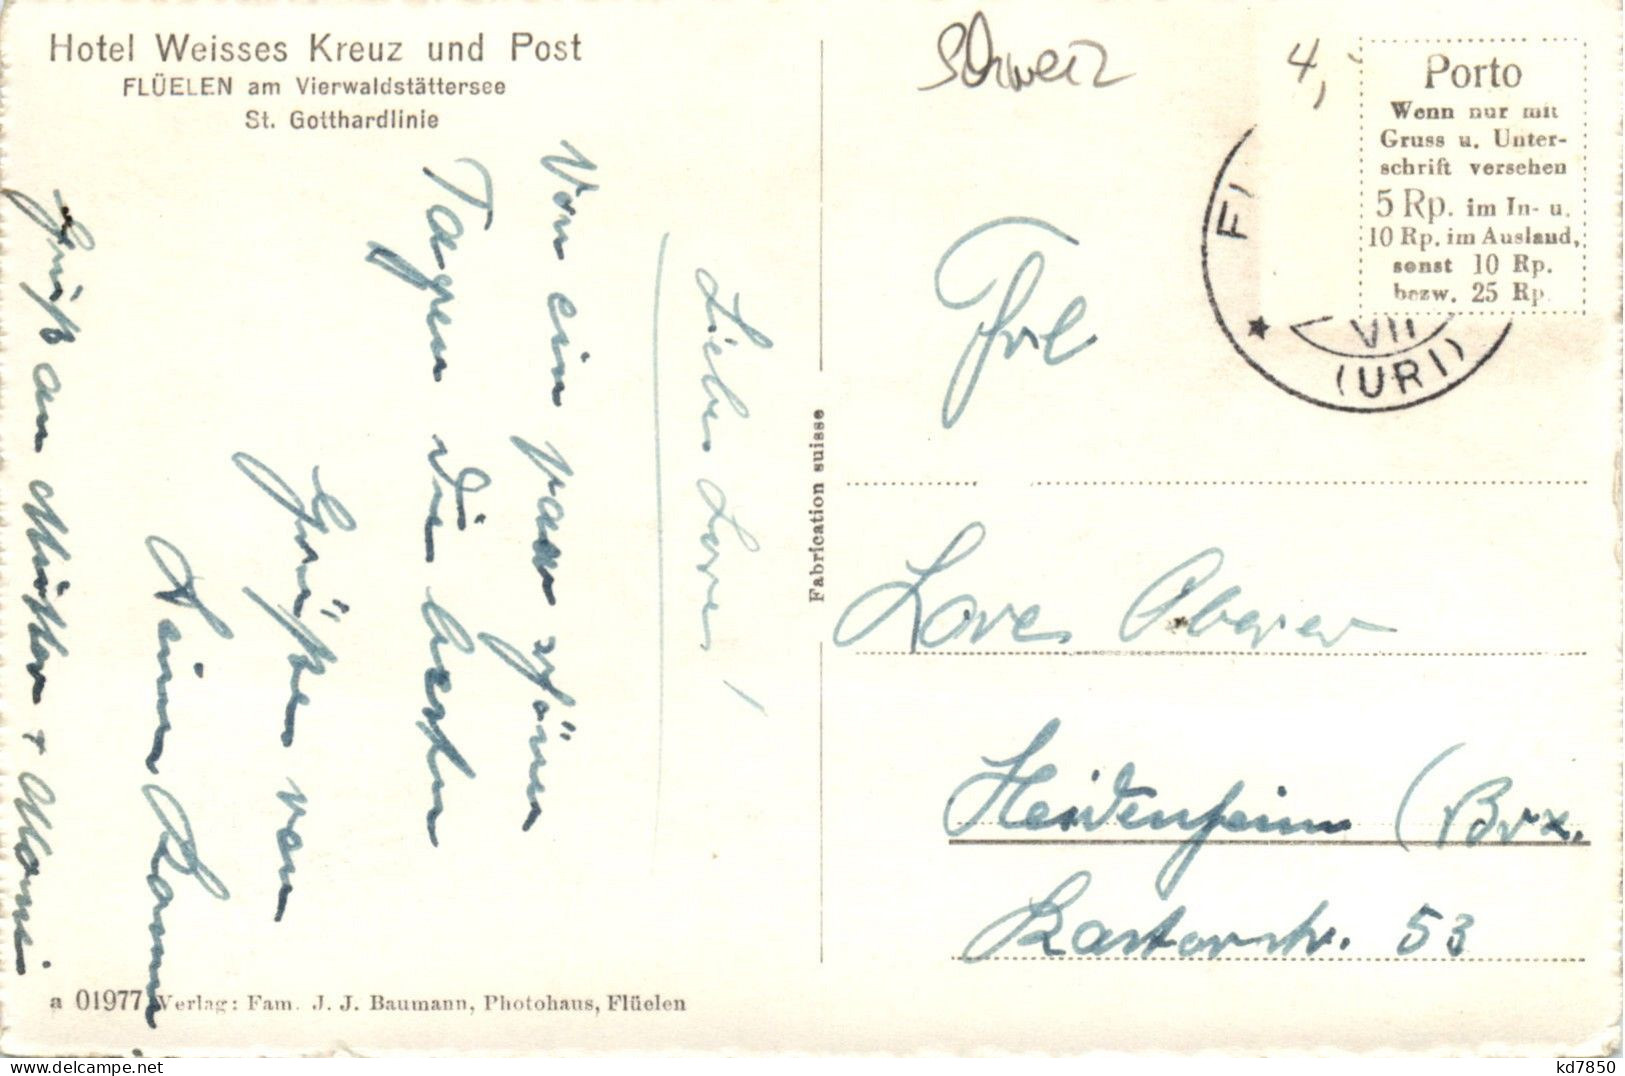 Hotel Weisses Kreuz und Post
FLÜELEN am Vierwaldstättersee
St. Gotthardlinie
Schweiz
4,-
Porto
Wenn nur mit
Gruss u. Unter-
schrift versehen
5 Rp. im In- u.
10 Rp. im Ausland,
sonst 10 Rp.
bezw. 25 Rp.
VII
(URI)
Liebe Lore!
Von ein paar schönen
Tagen die besten
Grüßen von
Gruß an Mutter +
Fabrication suisse
Frl
Lore Oberer
Heidenheim (Brz.
53
a 01977 Verlag: Fam. J. J. Baumann, Photohaus, Flüelen
kd7850